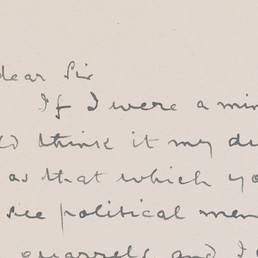 dear Sir
If I were a min
ld think it my du
as that which yo
see political men
quarrels and I